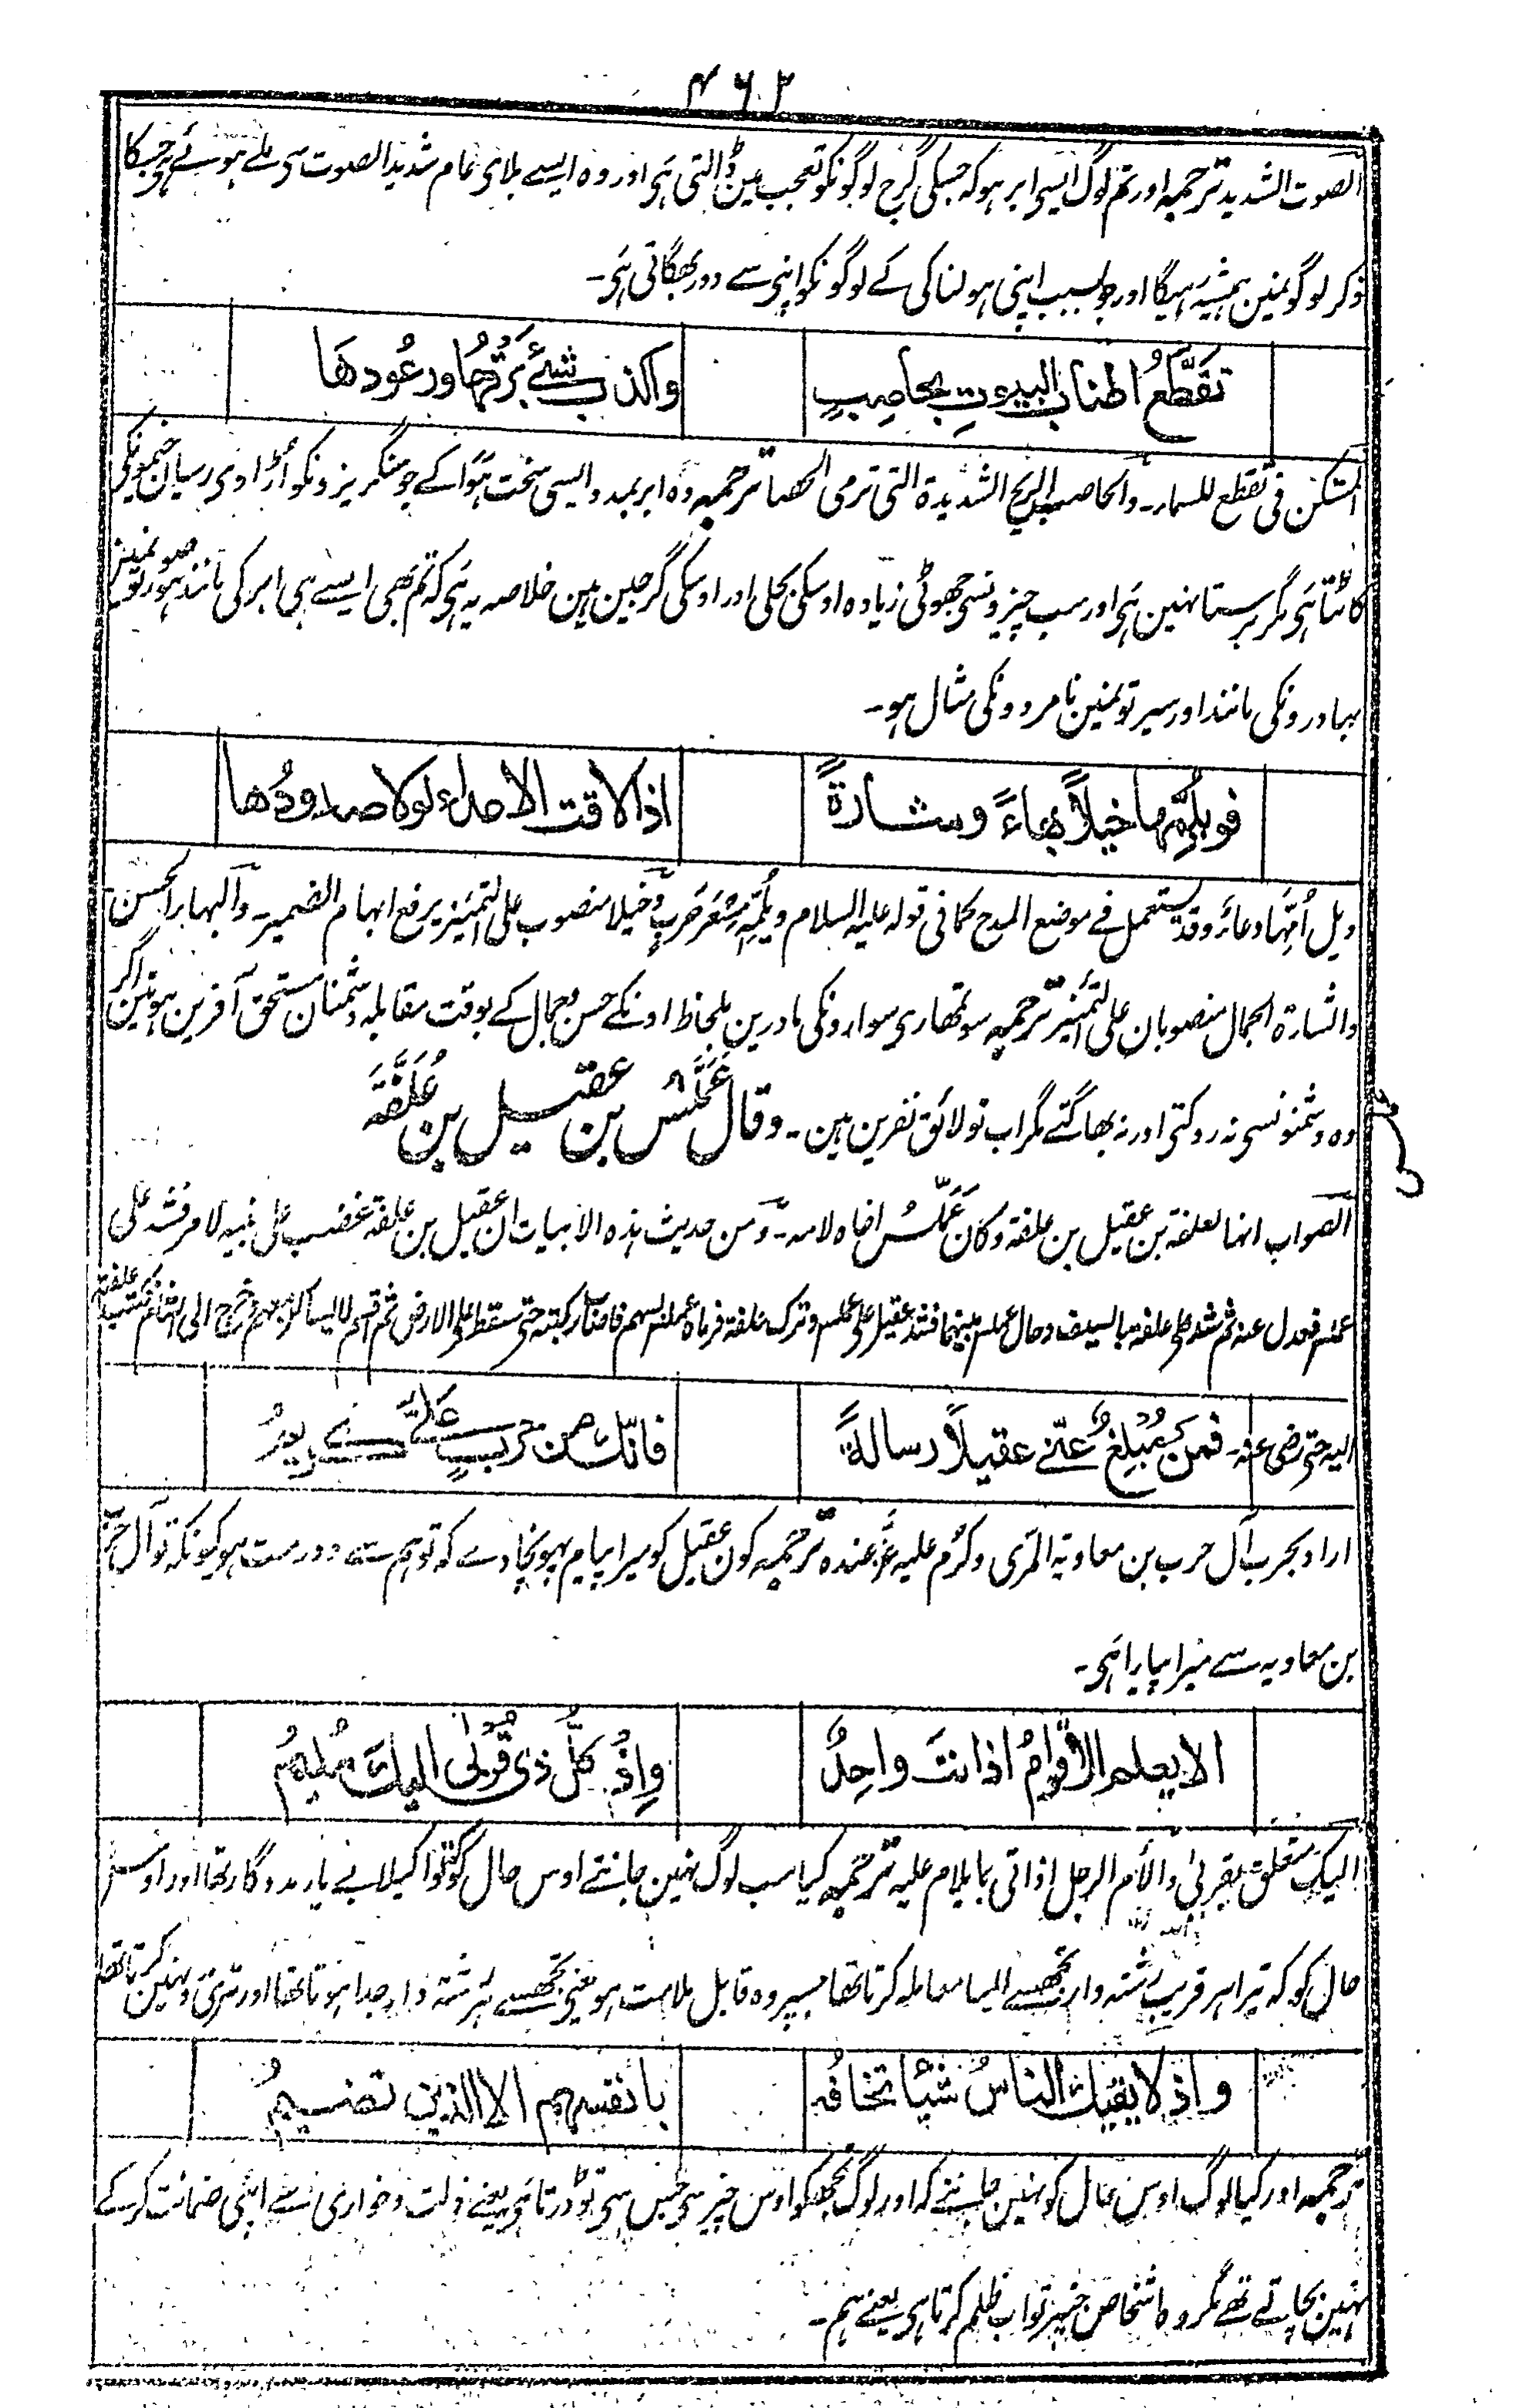 ۴۶۲
الصوت الشدید ترجمہ اور تم لوگ ایسی ابر ہو کہ جسکی گرج لوگونکو تعجب مین ڈالتی ہَی اور وہ ایسے بلای تمام شدید الصوت سی ملے ہوئے ہی جسکا
ذکر لوگونمین ہمیشہ رہیگا اور جو بسبب اپنی ہولناکی کے لوگونکو اپنی سے دور بھگاتی ہَی۔
تقَطَّعُ اطناب البیوتِ بحاصِبٍ واکذب شئےٍ بَرْقُہَا ورعُودھَا
المستکن فی تقطع للسماء۔ والحاصب الریح الشدیدۃ التی ترمی الحصا ترجمہ وہ ابر بمدد ایسی سخت ہَوا کے جو سنگریزونکو اُڑاوی رسیان خیمونکی
کاٹتا ہَی مگر برستا نہین ہَی اور سب چیزونسی جھوٹی زیادہ اوسکی بجلی اور اوسکی گرجین ہین خلاصہ یہ ہَی کہ تم بھی ایسے ہی ابر کی مانند ہو صورتونمین
بہادرونکی مانند اور سیرتونمین نامردونکی مثال ہو۔
فویلُمِّہا خیلاً بھاءً وشارۃً اذا لاقت الاعداء لولا صدودُھا
ویل اُمِّہَا دعاءٌ وقد یستعمل فے موضع المدح کما فی قولہ علیہ السلام ویلُمِّہٖ مِسْعَرَ حَربٍ وخیلا منصوب علی التمییز یرفع ابہام الضمیر۔ والبہاء الحسن
والشارۃ الجمال منصوبان علی التمییز ترجمہ سو تمھاری سوارونکی مادرین بلحاظ اونکے حسن وجمال کے بوقت مقابلہ دشمنان مستحق آفرین ہوتین اگر
وہ دشمنونسی نہ روکتی اور نہ بھاگتے مگر اب تو لائق نفرین ہین۔ وقال عَمَلَّسُ بن عقیل بن عُلَّفَۃَ
الصواب انہا لعلفۃ بن عقیل بن علفۃ وکان عَمَلَّسُ اخاہ لامہ۔ ومن حدیث ہذہ الابیات ان عقیل بن علفۃ غضب علی بنیہ لامر فشد علی
عملس فعدل عنہ ثم شد علی علفۃ بالسیف وحال عملس بینہما فشد عقیل علی عملس وترک علفۃ فرماہ عملس بسہم فاصاب رکبتہ حتی سقط علی الارض ثم اقسم لایساکنہم وخرج الی الشام فکتب علفۃ
الیہ حتی رضی عنہ۔ فمن مُبلِغٌ عنّے عقیلاً رسالۃً فانّک من حربٍ عَلَیَّ کریمُ
اراد بحرب آل حرب بن معاویۃ المرّی وکرُم علیہ عَزَّ عندہ ترجمہ کون عقیل کو میرا پیام پہونچاوے کہ تو ہم سے دور مت ہو کیونکہ تو آل حرب
بن معاویہ سے میرا پیارا ہَی۔
الا یعلم الاَقوامُ اذ انتَ واحِدٌ وِاذ کلُّ ذی قُربٰی الیکَ مُلیمُ
الیک متعلق بقربیٰ والاَم الرجل اذا اتی بما یلام علیہ ترجمہ کیا سب لوگ نہین جانتے اوس حال کو کہ تو اکیلا بے یار مددگار تھا اور اوس
حال کو کہ تیرا ہر قریب رشتہ دار تجھسے ایسا معاملہ کرتا تھا جسپر وہ قابل ملامت ہو یعنی تجھسے ہر رشتہ دار جدا ہوتا تھا اور تیری مدد نہین کرتا تھا
واذ لا یقیک الناسُ شیئا تخافُہ بانفسہم الا الذین تضیمُ
ترجمہ اور کیا لوگ اوس حال کو نہین جانتے کہ اور لوگ تجھکو اوس چیز سی جس سی تو ڈرتا ہَی یعنے ذلت وخواری سے اپنی ضمانت کرکے
نہین بچاتے تھے مگر وہ اشخاص جنپر تو اب ظلم کرتا ہی یعنے ہم۔